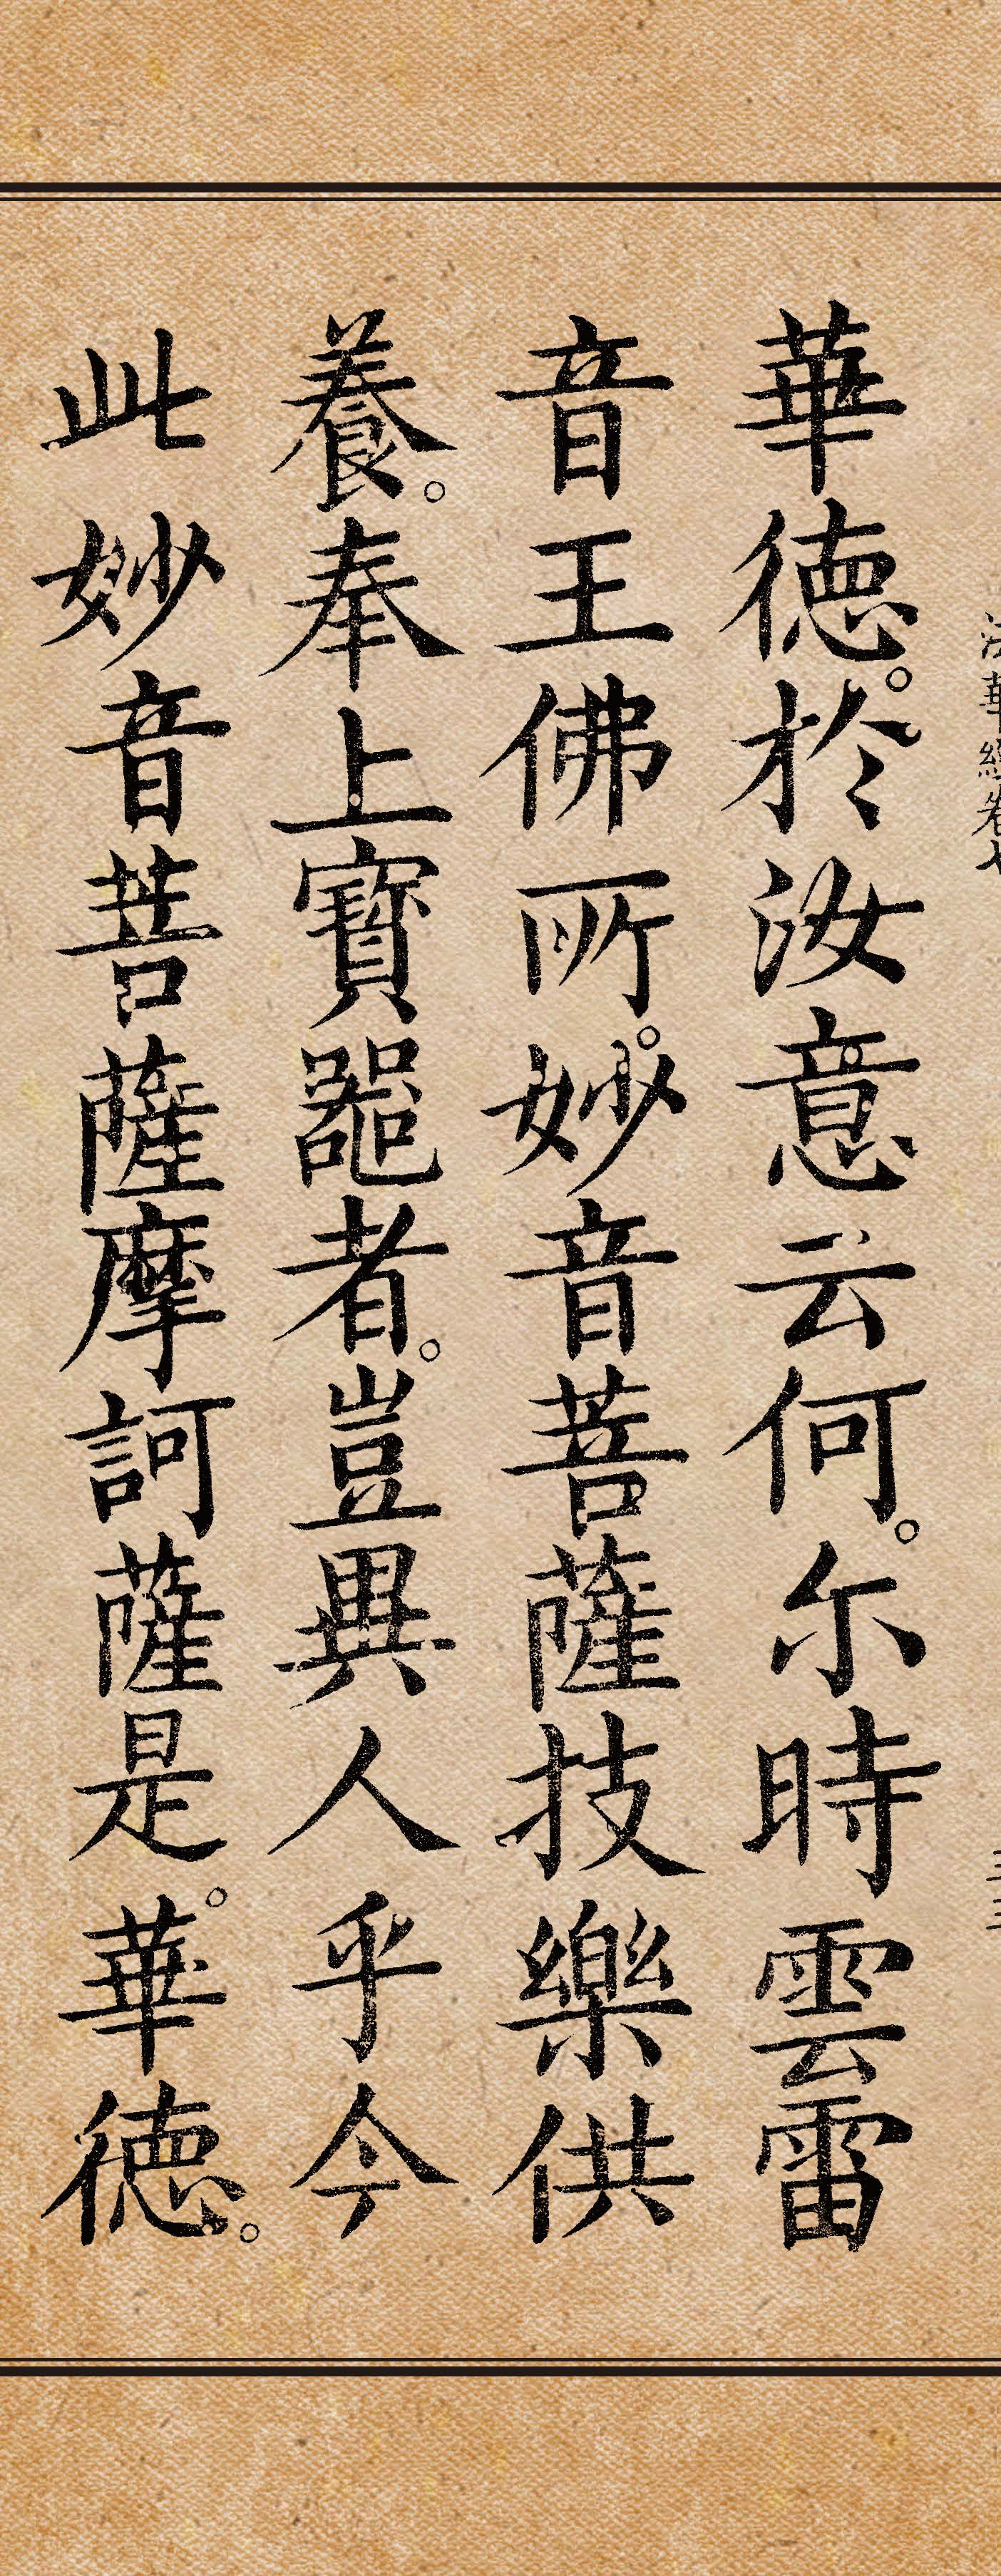 法華經卷七
華德。於汝意云何。尒時雲雷
音王佛所。妙音菩薩技樂供
養。奉上寶噐者。豈異人乎今
此妙音菩薩摩訶薩是。華德。